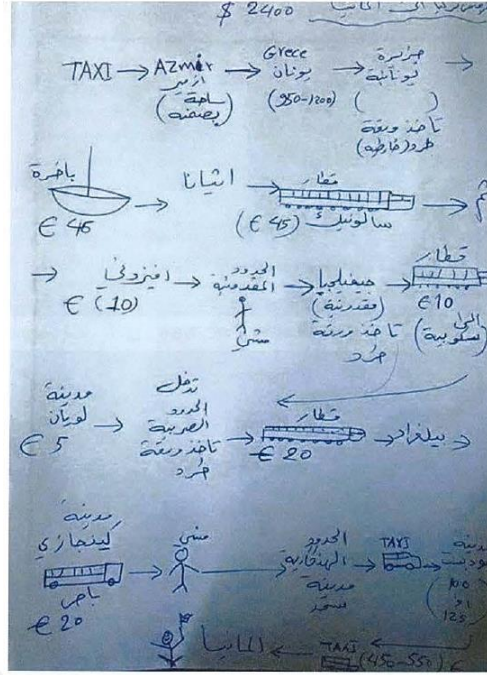 الى المانيا $ 2400
TAXI → Azmir ازمير (ساحة بصمنه) → Grece يونان (950-1200) → جزيرة يونانية ( ) تاخذ ورقة طرد (خارطيه) →
باخرة € 45 → اثينا → قطار سالونيك (€ 45) →
→ افيزوني € (10) → الحدود المقدونية مشي → جيفيليجيا (مقدونية) تاخذ ورقة طرد → قطار € 10 (الى سكوبية)
مدينة لويان € 5 → تدخل الحدود الصربية تاخذ ورقة طرد → قطار € 20 → بيلغراد →
مدينة كينجازي باص € 20 → مشي → الحدود الهنغارية مدينة سجد → TAXI → مدينة (100 او 125)
TAXI (450-550) ← المانيا